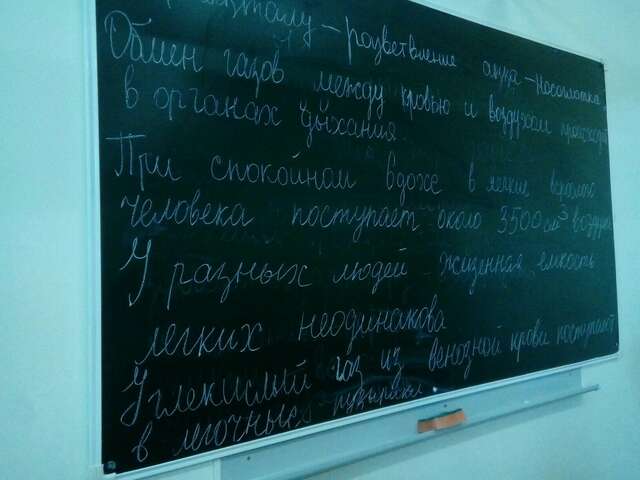 – розветвление
Обмен газов между кровью и воздухом происходит
в органах дыхания.
При спокойном вдохе в легкие взрослого
человека поступает около 3500 см³ воздуха
У разных людей жизненная емкость
легких неодинакова
Углекислый газ из венозной крови поступает
в легочные пузырьки